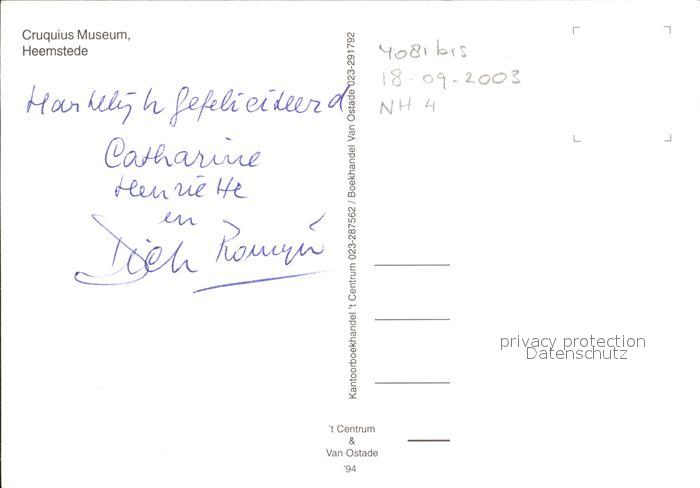 Cruquius Museum,
Heemstede
Hartelijk gefeliciteerd
Catharine
Henriette
en
Dick Romijn
Kantoorboekhandel 't Centrum 023-287562 / Boekhandel Van Ostade 023-291792
4081 bis
18-09-2003
NH 4
privacy protection
Datenschutz
't Centrum
&
Van Ostade
'94